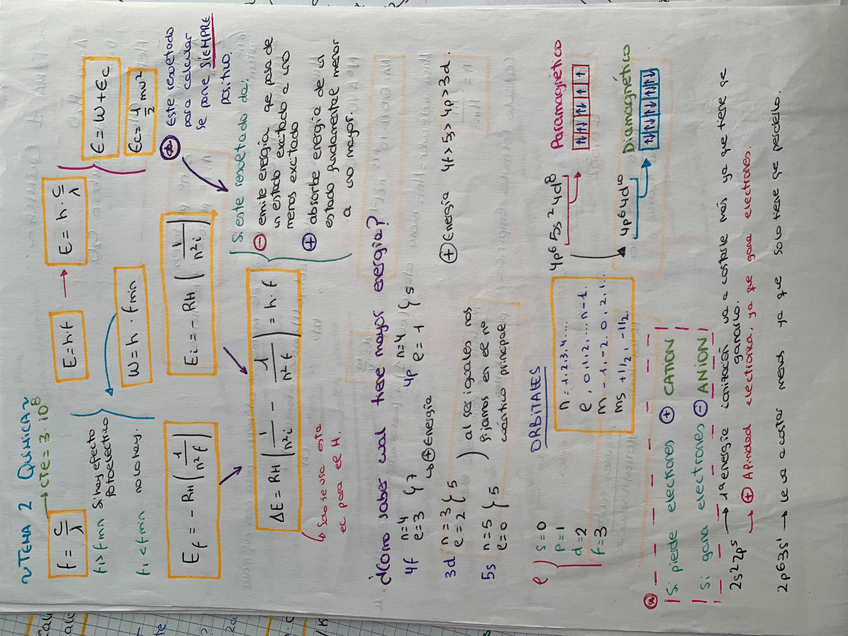 ~TEMA 2 QUIMICA~
f = c/λ → cte = 3·10⁸
E = h·f → E = h · c/λ
E = W + Ec
Ec = 1/2 mv²
f1 > f min Si hay efecto fotoelectrico
f1 < f min no lo hay.
W = h · f min
Ef = -RH (1/n²f)
Ei = -RH (1/n²i)
Este resultado
para calcular
se pone SIEMPRE
positivo.
ΔE = RH (1/n²i - 1/n²f) = h · f
Solo se usa esta
ec para el H.
Si este resultado da:
⊖ emite energia, que pasa de
un estado excitado a uno
menos excitado
⊕ absorbe energia de un
estado fundamental menor
a uno mayor.
¿Como saber cual tiene mayor energia?
4f n=4
l=3 } 7
4p n=4
l=1 } 5
↳ ⊕ Energia
3d n=3
l=2 } 5
5s n=5
l=0 } 5
) al ser iguales nos
fijamos en el nº
cuántico principal
⊕ Energia 4f > 5s > 4p > 3d.
ORBITALES
l s=0
p=1
d=2
f=3
n : 1, 2, 3, 4, ...
l , 0, 1, 2, ... n-1.
m -1, -2, 0, 2, 1..
ms +1/2, -1/2.
4p⁶ 5s² 4d⁸ Paramagnético
4p⁶ 4d¹⁰ Diamagnético
Si pierde electrones ⊕ CATION
Si gana electrones ⊖ ANION
2s² 2p⁵ → 1ª energia ionización va a costarle más ya que tiene que
ganarlo.
→ ⊕ Afinidad electronica, ya que gana electrones.
2p⁶ 3s¹ → le va a costar menos ya que solo tiene que perderlo.